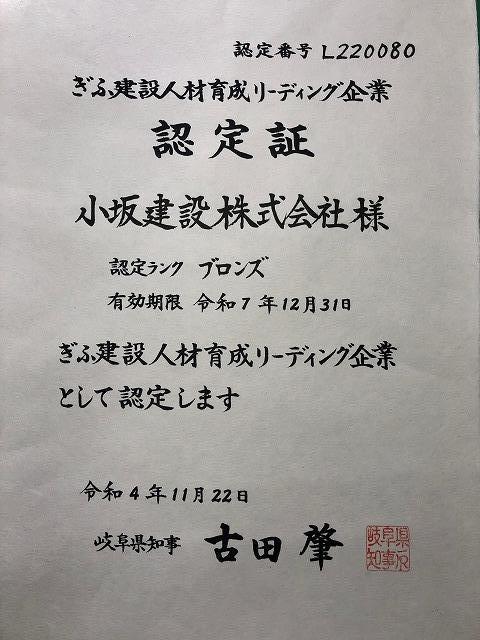 認定番号 L220080
ぎふ建設人材育成リーディング企業
認定証
小坂建設株式会社様
認定ランク ブロンズ
有効期限 令和7年12月31日
ぎふ建設人材育成リーディング企業
として認定します
令和4年11月22日
岐阜県知事 古田肇